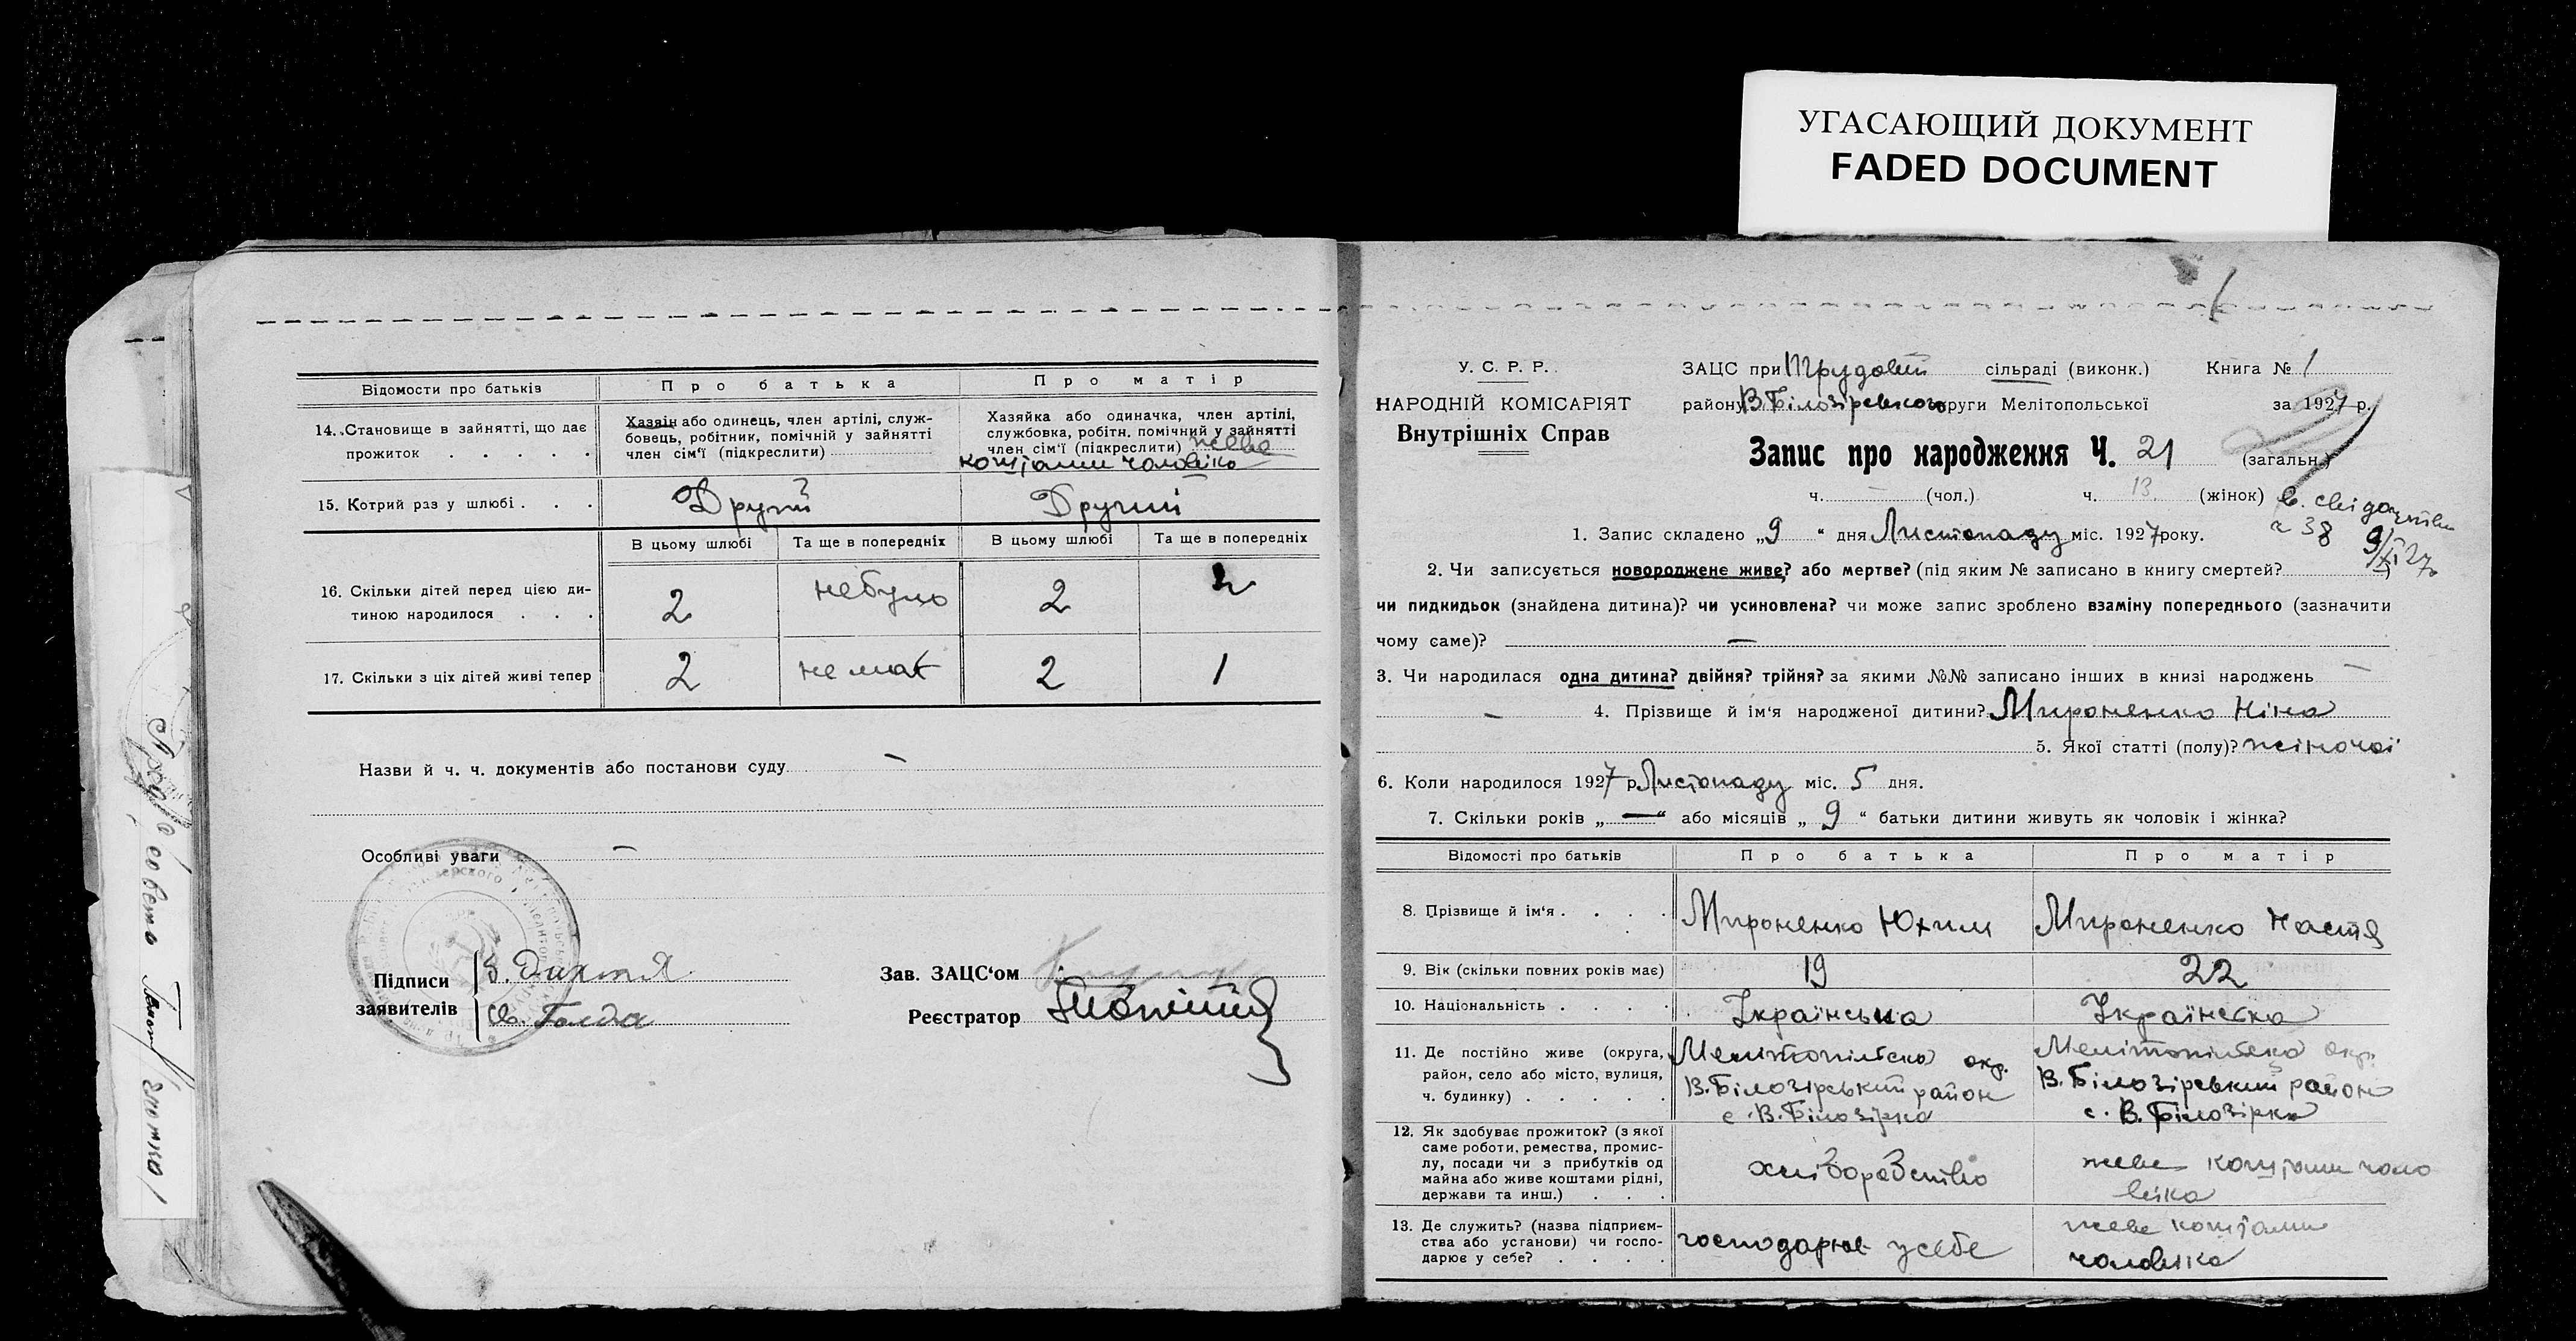 УГАСАЮЩИЙ ДОКУМЕНТ
FADED DOCUMENT
Відомости про батьків
Про батька
Про матір
14. Становище в зайнятті, що дає прожиток
Хазяін або одинець, член артілі, служ-
бовець, робітник, помічній у зайнятті
член сім'ї (підкреслити)
Хазяйка або одиначка, член артілі,
службовка, робітн. помічний у зайнятті
член сім'ї (підкреслити) живе
коштами чоловіка
15. Котрий раз у шлюбі
Другий
Другий
В цьому шлюбі
Та ще в попередніх
В цьому шлюбі
Та ще в попередніх
16. Скільки дітей перед цією ди-
тиною народилося
2
небуло
2
2
17. Скільки з ціх дітей живі тепер
2
немає
2
1
Назви й ч. ч. документів або постанови суду —
Особливі уваги —
Підписи
заявителів
Зав. ЗАЦС'ом
Реєстратор
У. С. Р. Р.
НАРОДНІЙ КОМІСАРІЯТ
Внутрішніх Справ
ЗАЦС при Трудовій сільраді (виконк.) Книга № 1
району В. Білозірського округи Мелітопольської за 1927 р.
Запис про народження Ч. 21 (загальн.)
ч. — (чол.) ч. 13. (жінок)
в. свідоцтво
ч 38
9/XI 27
1. Запис складено „9“ дня Листопаду міс. 1927 року.
2. Чи записується новороджене живе? або мертве? (під яким № записано в книгу смертей? )
чи пидкидьок (знайдена дитина)? чи усиновлена? чи може запис зроблено взаміну попереднього (зазначити
чому саме)? —
3. Чи народилася одна дитина? двійня? трійня? за якими №№ записано інших в книзі народжень —
— 4. Прізвище й ім'я народженої дитини? Мироненко Ніна
5. Якої статті (полу)? жіночої
6. Коли народилося 1927 р. Листопаду міс. 5 дня.
7. Скільки років „—“ або місяців „9“ батьки дитини живуть як чоловік і жінка?
Відомості про батьків
Про батька
Про матір
8. Прізвище й ім'я
Мироненко Юхим
Мироненко Настя
9. Вік (скільки повних років має)
19
22
10. Національність
Українська
Українська
11. Де постійно живе (округа,
район, село або місто, вулиця,
ч. будинку)
Мелітопільська окр.
В. Білозірський район
с. В. Білозірка
Мелітопільська окр.
В. Білозірський район
с. В. Білозірка
12. Як здобуває прожиток? (з якої
саме роботи, ремества, промис-
лу, посади чи з прибутків од
майна або живе коштами рідні,
держави та инш.)
хліборобство
живе коштами чоло
віка
13. Де служить? (назва підприєм-
ства або установи) чи госпо-
дарює у себе?
господарює усебе
живе коштами
чоловіка